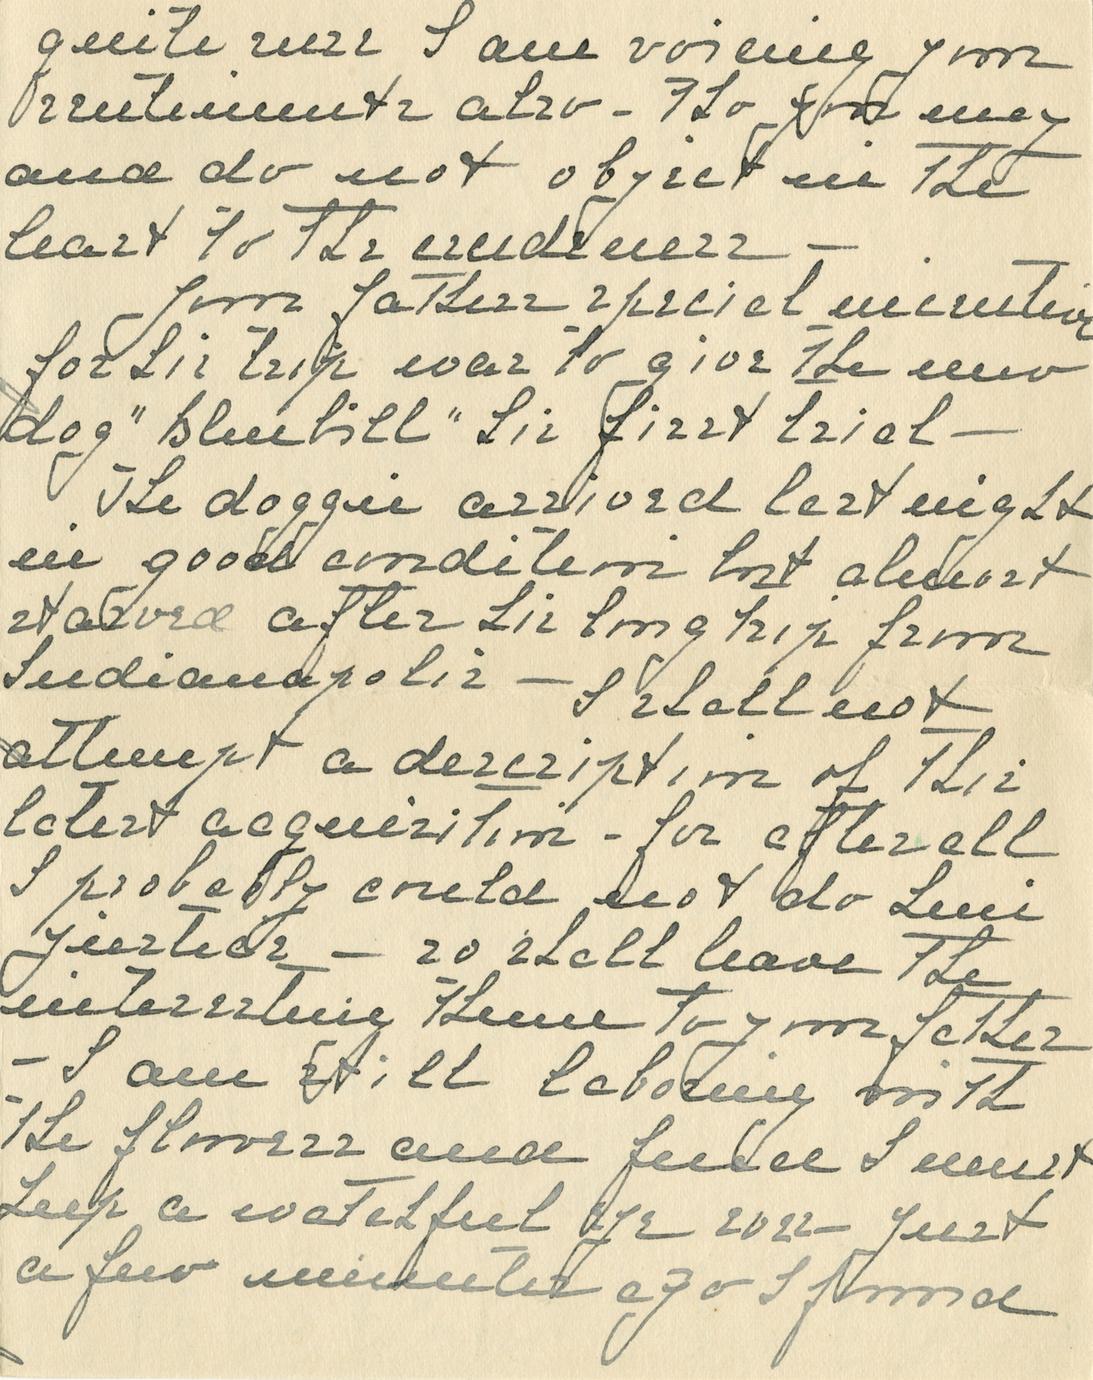 quite sure I am voicing your
sentiments also - Tho you may
and do not object in the
least to the crudeness -
Your fathers special incentive
for his trip was to give the new
dog "Bluebill" his first trial -
The doggie arrived last night
in good condition but almost
starved after his long trip from
Indianapolis - I shall not
attempt a description of this
latest acquisition - for after all
I probably could not do him
justice - so shall leave the
interesting theme to your father
- I am still laboring with
the flowers and find I must
keep a watchful eye son - just
a few minutes ago I found